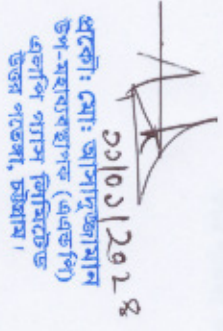 ১১/০১/২০২৪
প্রকৌঃ মোঃ আসাদুজ্জামান
উপ-মহাব্যবস্থাপক (এডমিন)
এলপি গ্যাস লিমিটেড
উত্তর পতেঙ্গা, চট্টগ্রাম।